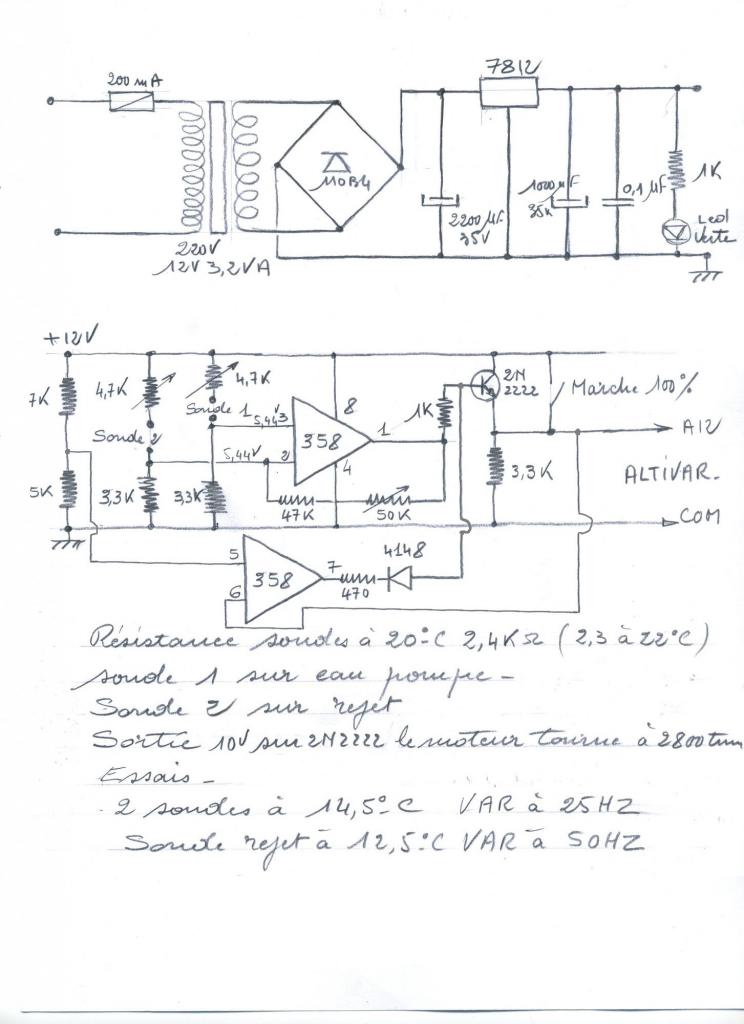 200 mA
7812
110B4
220V
12V 3,2VA
2200 µF
35V
1000 µF
0,1 µF
1K
Led
Verte
+12V
7K
4,7K
4,7K
Sonde 1
Sonde 2
5,44V
3
5,44V
2
358
8
1
4
1K
2N
2222
Marche 100%
A12
ALTIVAR.
COM
3,3K
5K
3,3K
3,3K
47K
50K
5
6
358
7
470
4148
Résistance sondes à 20°C 2,4KΩ (2,3 à 22°C)
sonde 1 sur eau pompe -
Sonde 2 sur rejet
Sortie 10V sur 2N2222 le moteur tourne à 2800
Essais -
2 sondes à 14,5°C VAR à 25HZ
Sonde rejet à 12,5°C VAR à 50HZ